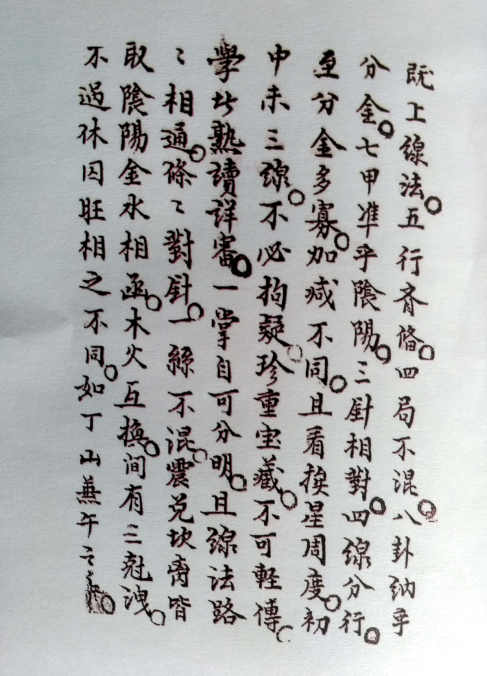 既上線法。五行斉俻。四局不混。八卦納乎
分金。七甲准乎陰陽。三針相對。四線分行。
至分金多寡。加减不同。且看挨星周度。初
中末三線。不必拘疑。珍重宝藏。不可輕傳。
學此熟讀詳審。一掌自可分明。且線法路
〻相通。條〻對針。一絲不混。震兑坎离皆
取陰陽。金水相函。木火互換。间有三尅洩。
不过休囚旺相之不同。如丁山兼午之